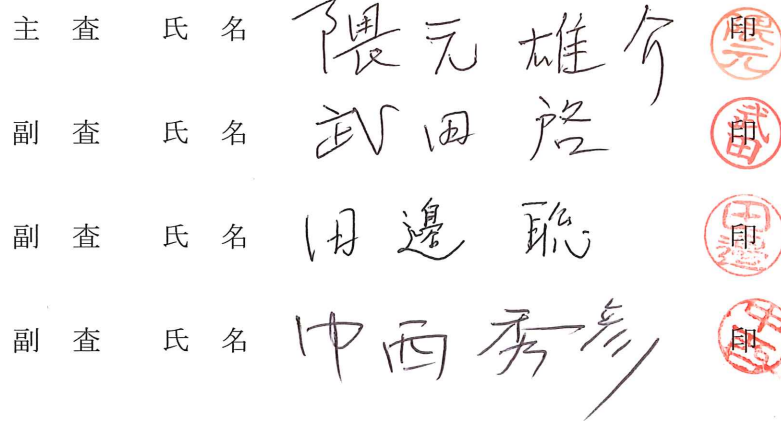 主査 氏名 隈元雄介 印
副査 氏名 武田啓 印
副査 氏名 田邊聡 印
副査 氏名 中西秀彦 印